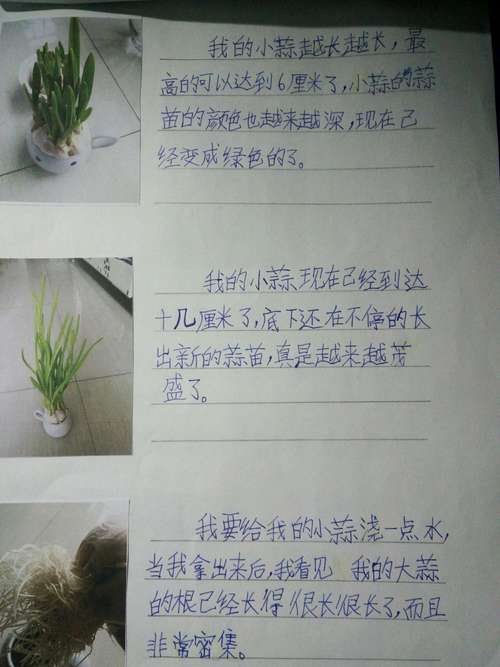 我的小蒜越长越长，最
高的可以达到6厘米了，小蒜的蒜
苗的颜色也越来越深，现在已
经变成绿色的了。
我的小蒜现在已经到达
十几厘米了，底下还在不停的长
出新的蒜苗，真是越来越茂
盛了。
我要给我的小蒜浇一点水，
当我拿出来后，我看见 我的大蒜
的根已经长得很长很长了，而且
非常密集。